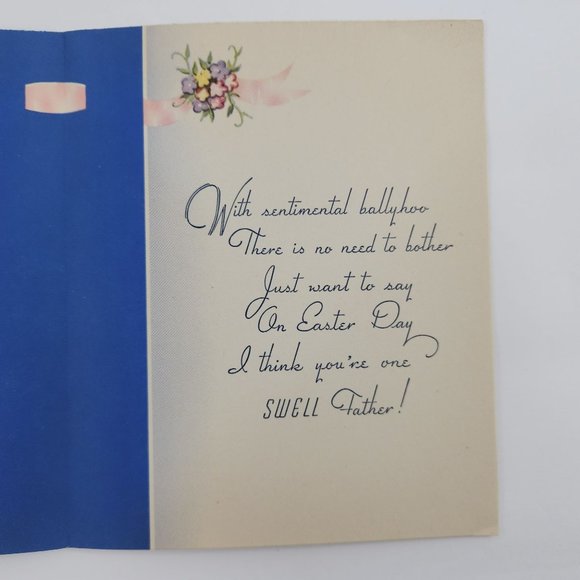 With sentimental ballyhoo
There is no need to bother
Just want to say
On Easter Day
I think you're one
SWELL Father!